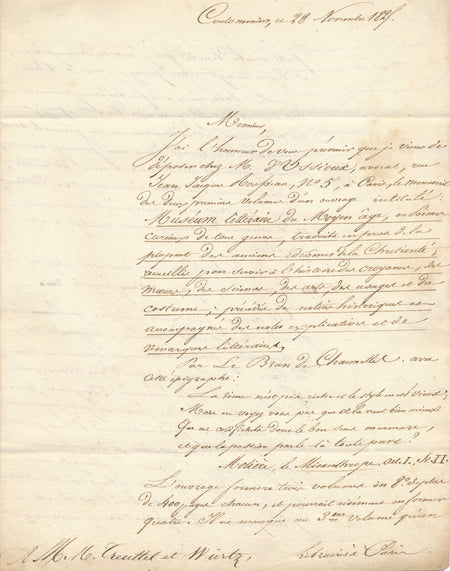 Coulommiers, ce 28 Novembre 1825.
Monsieur,
J'ai l'honneur de vous prévenir que je viens de
déposer chez M. d'Ussieux, avocat, rue
Jean Jaques Rousseau, N.º 5, à Paris, le manuscrit
des deux premiers volumes d'un ouvrage intitulé:
Muséum littéraire du Moyen âge, ou
de tous genres, traduits en prose de la
plupart des anciens idiômes de la Chrétienté,
recueillis pour servir à l'histoire des croyances, des
mœurs, des sciences, des arts, des usages et du
costume; précédés de notices historiques et
accompagnés de notes explicatives et de
remarques littéraires,
Par Le Brun de Charmettes. avec
cette épigraphe:
La rime n'est pas riche et le style en est vieux:
Mais ne voyez vous pas que cela vaut bien mieux
Que ces dont le bon sens murmure,
Et que la passion parle là toute pure?
Molière, le Misanthrope, Act. I. Sc. II.
L'ouvrage formera trois volumes in 8º de plus
de 400 pages chacun, et pourrait même en former
quatre. Il ne manque au 3me volume qu'un
A M.M. Treuttel et Würtz, Libraires à Paris